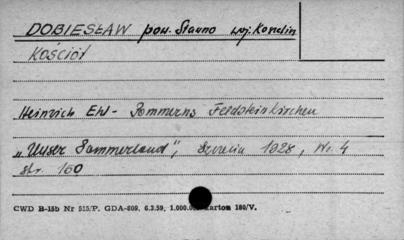 DOBIESŁAW pow. Sławno woj. Koszalin
Kościół
Heinrich Ehl - Pommerns Feldsteinkirchen
"Unser Pommerland", Szczecin 1928, Nr. 4
str. 160
CWD B-15b Nr 515/P. GDA-809. 6.3.59, 1.000.00 karton 180/V.